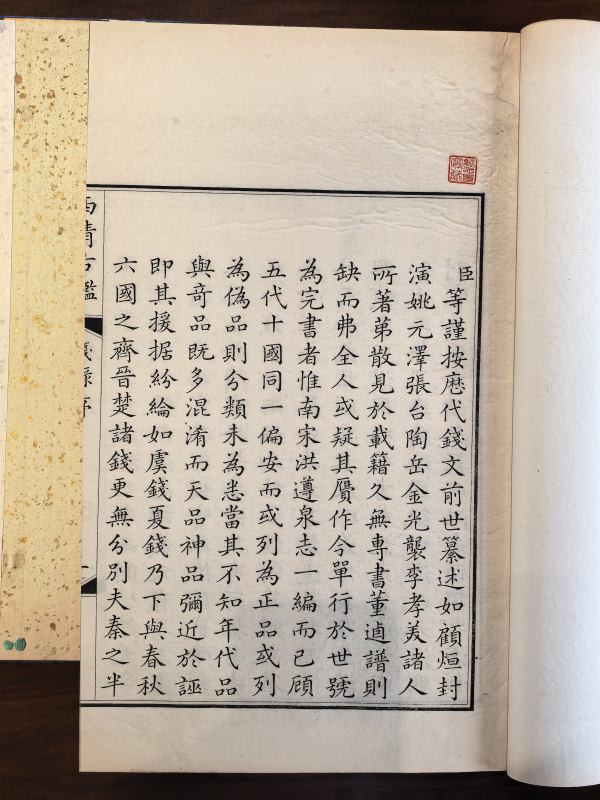 臣等謹按厯代錢文前世纂述如顧烜封
演姚元澤張台陶岳金光襲李孝美諸人
所著苐散見於載籍久無專書董逌譜則
缺而弗全人或疑其贗作今單行於世號
為完書者惟南宋洪遵泉志一編而已顧
五代十國同一偏安而或列為正品或列
為偽品則分類未為悉當其不知年代品
與竒品既多混淆而天品神品彌近於誣
即其援据紛綸如虞錢夏錢乃下與春秋
六國之齊晉楚諸錢更無分別夫秦之半
西清古鑑
錢錄序